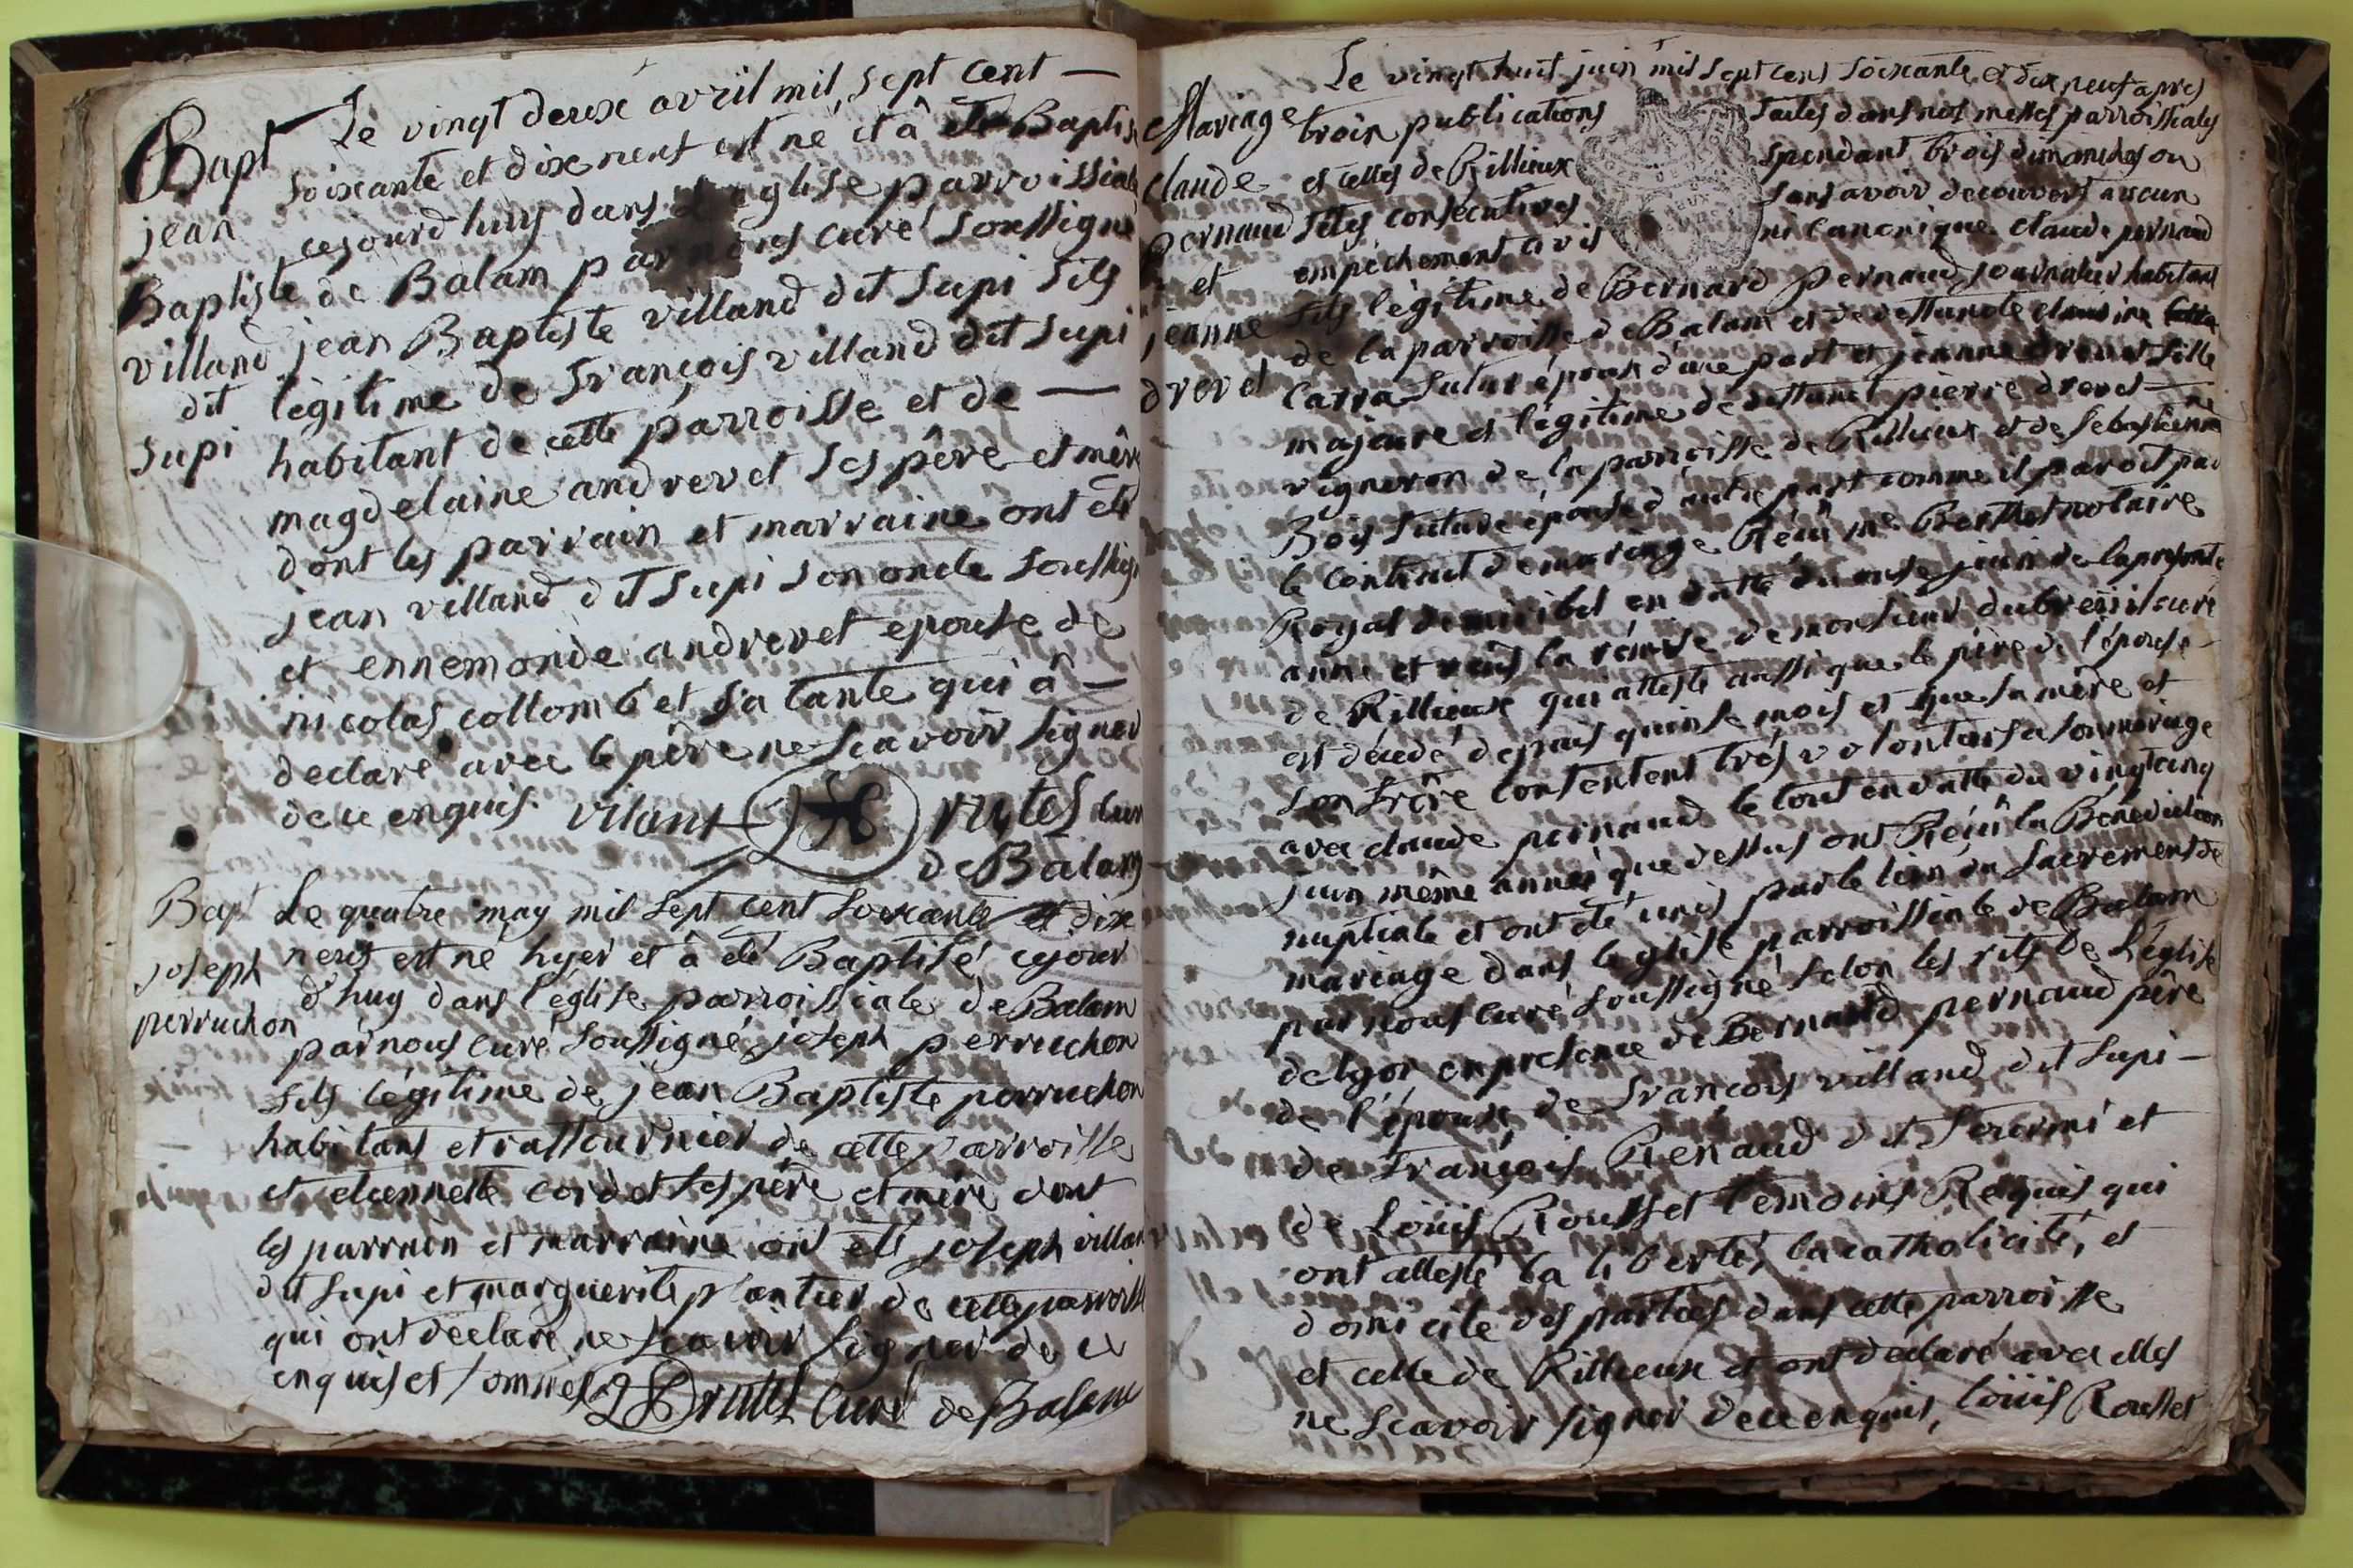 Bapt
jean
Baptiste
villand
dit
Supi
Le vingt deux avril mil sept cent —
soixante et dix neuf est né et â été Baptisé
cejourd'huy dans l'eglise parroissiale
de Balam par nous curé soussigné
jean Baptiste villand dit Supi fils
légitime de françois villand dit Supi
habitant de cette parroisse et de —
magdelaine andrevet ses pêre et mêre
dont les parrain et marraine ont été
jean villand dit Supi son oncle soussigné
et ennemonde andrevet epouse de
nicolas collomb et sa tante qui â —
declaré avec le pêre ne scavoir signer
de ce enquis vilant rutet curé
de Balam
Bapt
joseph
perruchon
Le quatre may mil sept cent soixante et dix
neuf est né hyer et â été Baptisé cejour
d'huy dans l'eglise parroissiale de Balam
par nous curé soussigné joseph perruchon
fils légitime de jean Baptiste perruchon
habitant et de cette parroisse
et etiennette cordet ses pêre et mêre dont
les parrain et marraine ont été joseph villand
dit Supi et marguerite plantier de cette parroisse
qui ont declaré ne scavoir signer de ce
enquis et sommés rutet curé de Balam
Mariage
claude
pernaud
et
jeanne
drevet
Le vingt huit juin mil sept cent soixante et dix neuf apres
trois publications faites dans nos messes parroissiales
et celles de Rillieux pendant trois dimanches ou
fêtes consécutives sans avoir decouvert aucun
empêchement civil ni canonique claude pernaud
fils légitime de Bernard pernaud journalier habitant
de la parroisse de Balam et de deffunte claudine
Carra futur époux d'une part et jeanne drevet fille
majeure et légitime de deffunct pierre drevet —
vigneron de la parroisse de Rillieux et de Sebastienne
Bois future épouse d'autre part comme il paroit par
le contract de mariage Réçu me Berthet notaire
Royal de miribel en datte du onze juin de la presente
année et veüs la remise de monsieur dubreüil curé
de Rillieux qui atteste aussi que le père de l'épouse
est décédé depuis quinse mois et que sa mêre et
son frêre consentent trés volontiers a son mariage
avec claude pernaud le tout en datte du vingt cinq
juin même année que dessus ont Réçu la Bénédiction
nuptiale et ont été unis par le lien du Sacrement de
mariage dans l'eglise parroissiale de Balam
par nous curé soussigné selon les rits de l'église
de lyon en presence de Bernard pernaud pêre
de l'époux, de francois villand dit Supi —
de françois Renaud dit et
de Loüis Rousset temoins Requis qui
ont attesté la liberté, la catholicité, et
domicile des parties dans cette parroisse
et celle de Rillieux et ont déclaré avec elles
ne scavoir signer de ce enquis, loüis Rousset